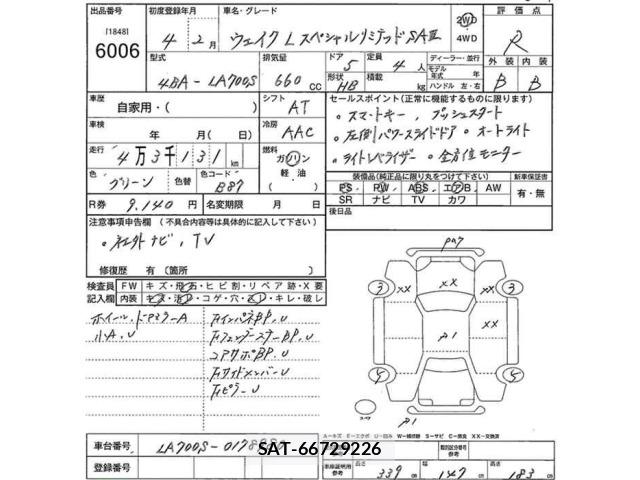 出品番号 初度登録年月 車名・グレード 評価点
[1848]
6006
4年2月 ウェイク L スペシャルリミテッドSAⅢ 2WD
4WD
R
型式 排気量 ドア 定員 ディーラー・並行
4BA-LA700S 660cc 5 4人
モデル年式 年 外装 内装
形状 HB 積載 kg ハンドル 左・右 B B
車歴 自家用・( ) シフト AT
セールスポイント(正常に機能するものに限ります)
・スマートキー, プッシュスタート
車検 年 月( 日) 冷房 AAC
・左側パワースライドドア ・オートライト
走行 4万3千131km 燃料 ガソリン
軽油
・ライトレベライザー ・全方位モニター
色 グリーン 色替 色コード B87
装備品(純正品に限り丸をつけて下さい) 新車保証書
PS PW ABS エアB AW 有・無
SR ナビ TV カワ
R券 9,140円 名変期限 月 日
後日品
注意事項申告欄(不具合内容等は具体的に記入して下さい)
・社外ナビ, TV
修復歴 有(箇所 )
検査員 FW キズ・飛石・ヒビ割・リペア跡・X要
記入欄 内装 コゲ・穴 キレ・破レ
小A, U
車台番号 LA700S-0178
SAT-66729226
登録番号
車証明用参考 長さ 339 cm 幅 147 cm 高さ 183 cm
A…キズ E…エクボ U…凹み W…補修跡 S…サビ C…腐食 XX…交換済
XX XX XX XX
P1
P1
3 3
5 5